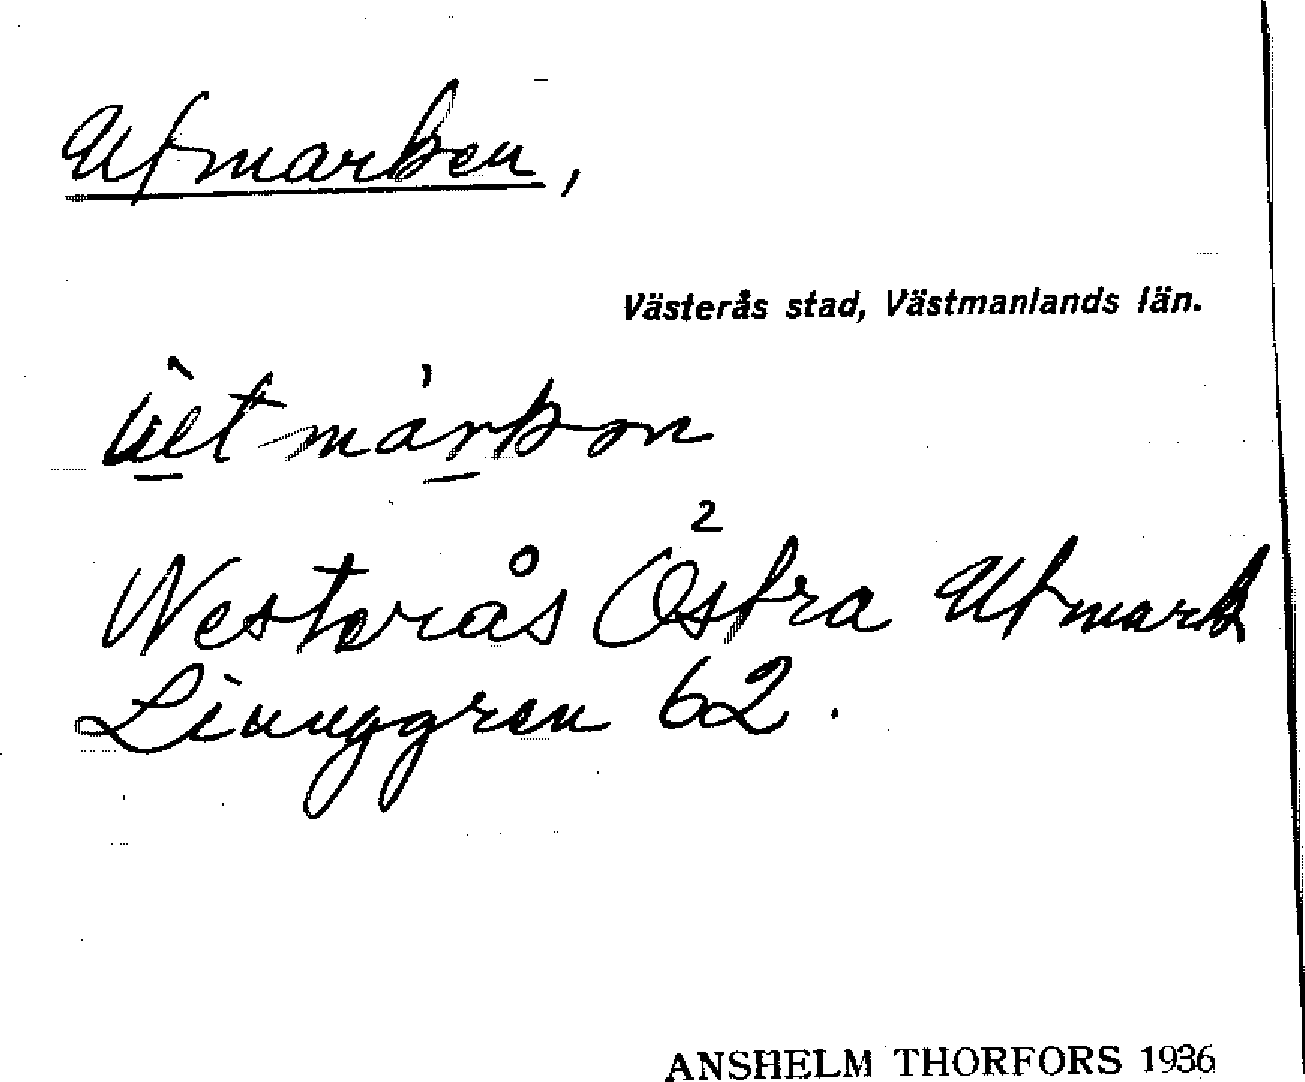 Utmarken,
Västerås stad, Västmanlands län.
ùetmárkon
Westerås Östra Utmark
Liunggren 62.
ANSHELM THORFORS 1936